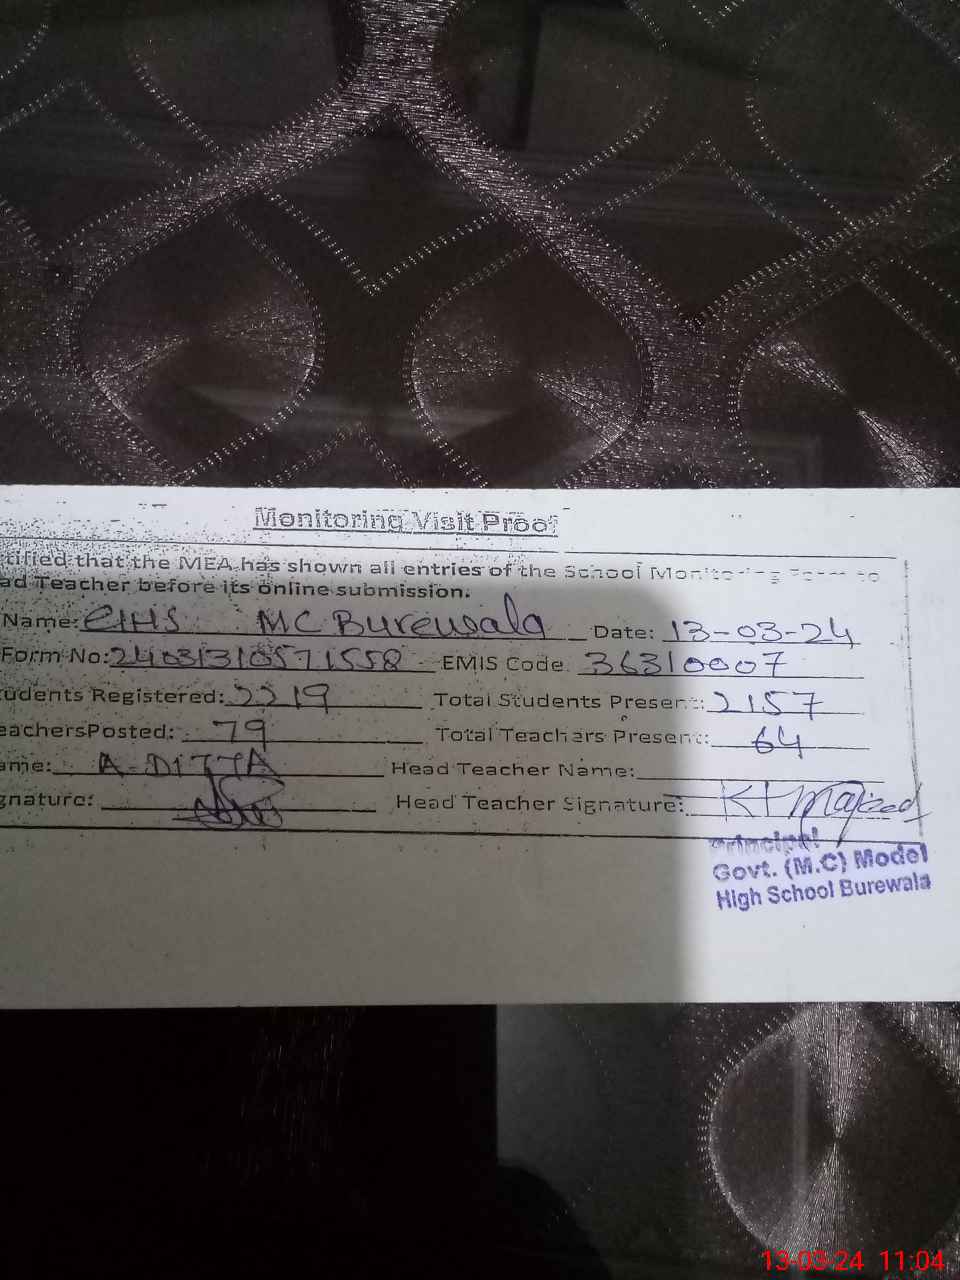 Monitoring Visit Proof
tified that the MEA has shown all entries of the School Monitoring Form to
ad Teacher before its online submission.
Name: GHS MC Burewala Date: 13-03-24
Form No: 24031310571558 EMIS Code: 36310007
udents Registered: 2219 Total Students Present: 2157
eachersPosted: 79 Total Teachers Present: 64
ame: A-DITTA Head Teacher Name:
gnature: Head Teacher Signature: KHMajeed
Principal
Govt. (M.C) Model
High School Burewala
13-03-24 11:04